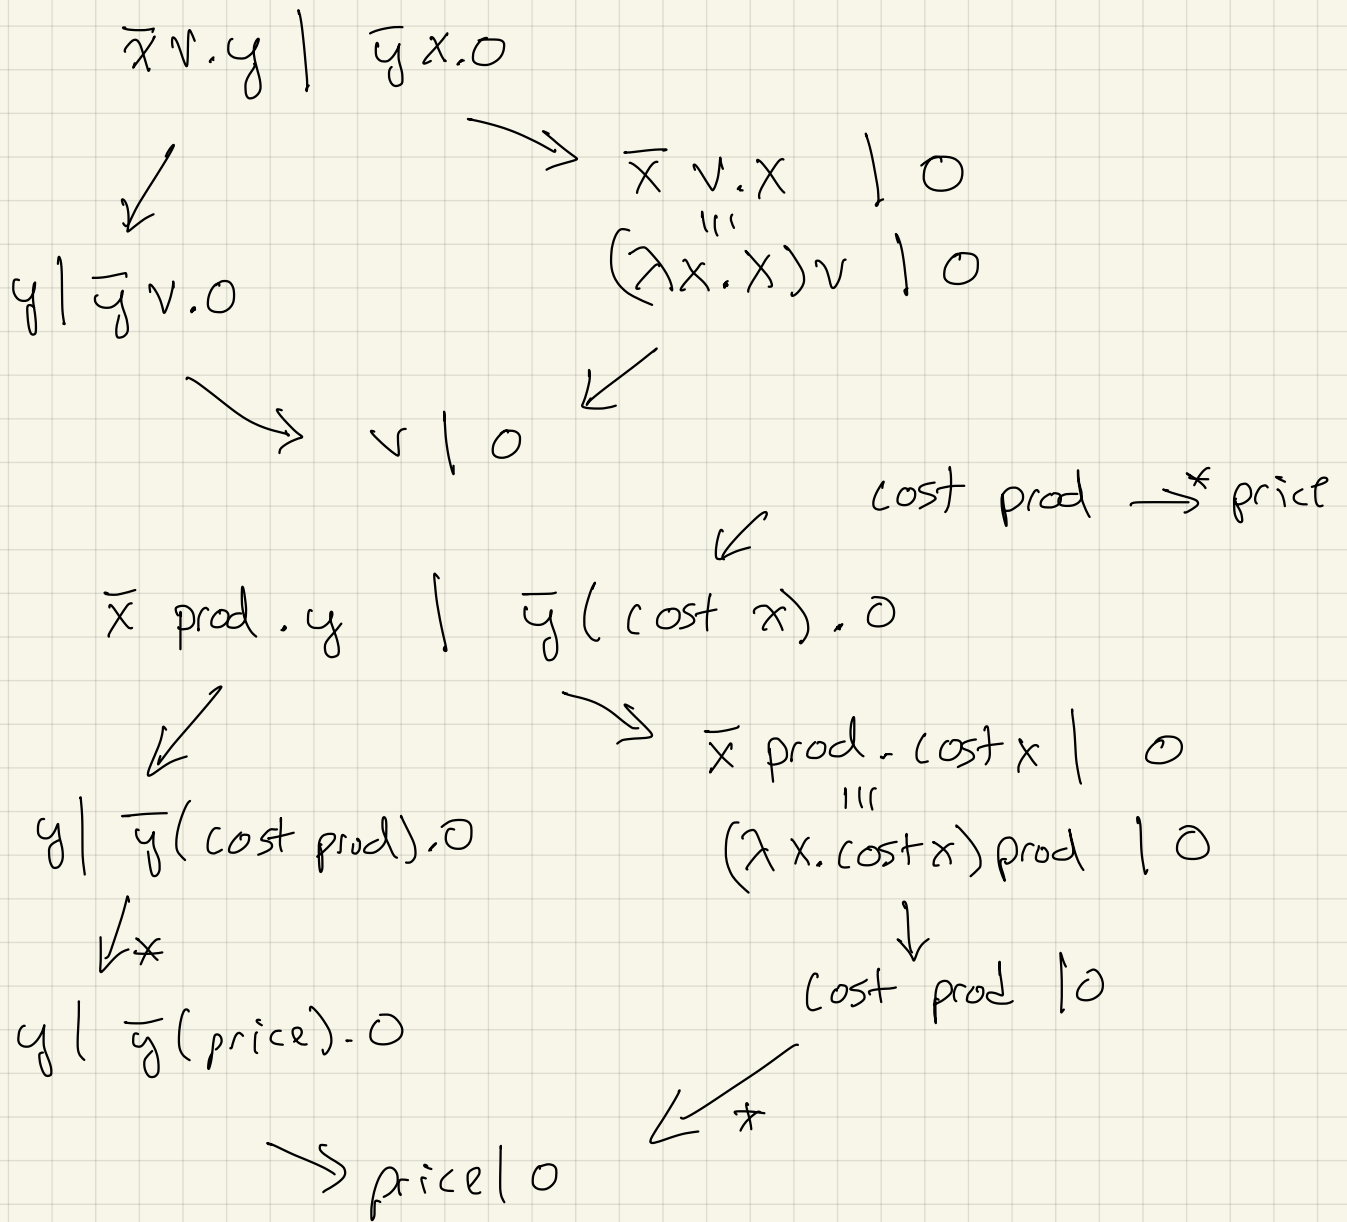 x̅ v.y | y̅ x.0
x̅ v.x | 0
≡
(λx.x)v | 0
y | y̅ v.0
v | 0
cost prod →* price
x̅ prod.y | y̅(cost x).0
x̅ prod.cost x | 0
≡
(λx.cost x)prod | 0
y | y̅(cost prod).0
*
cost prod | 0
y | y̅(price).0
*
price | 0